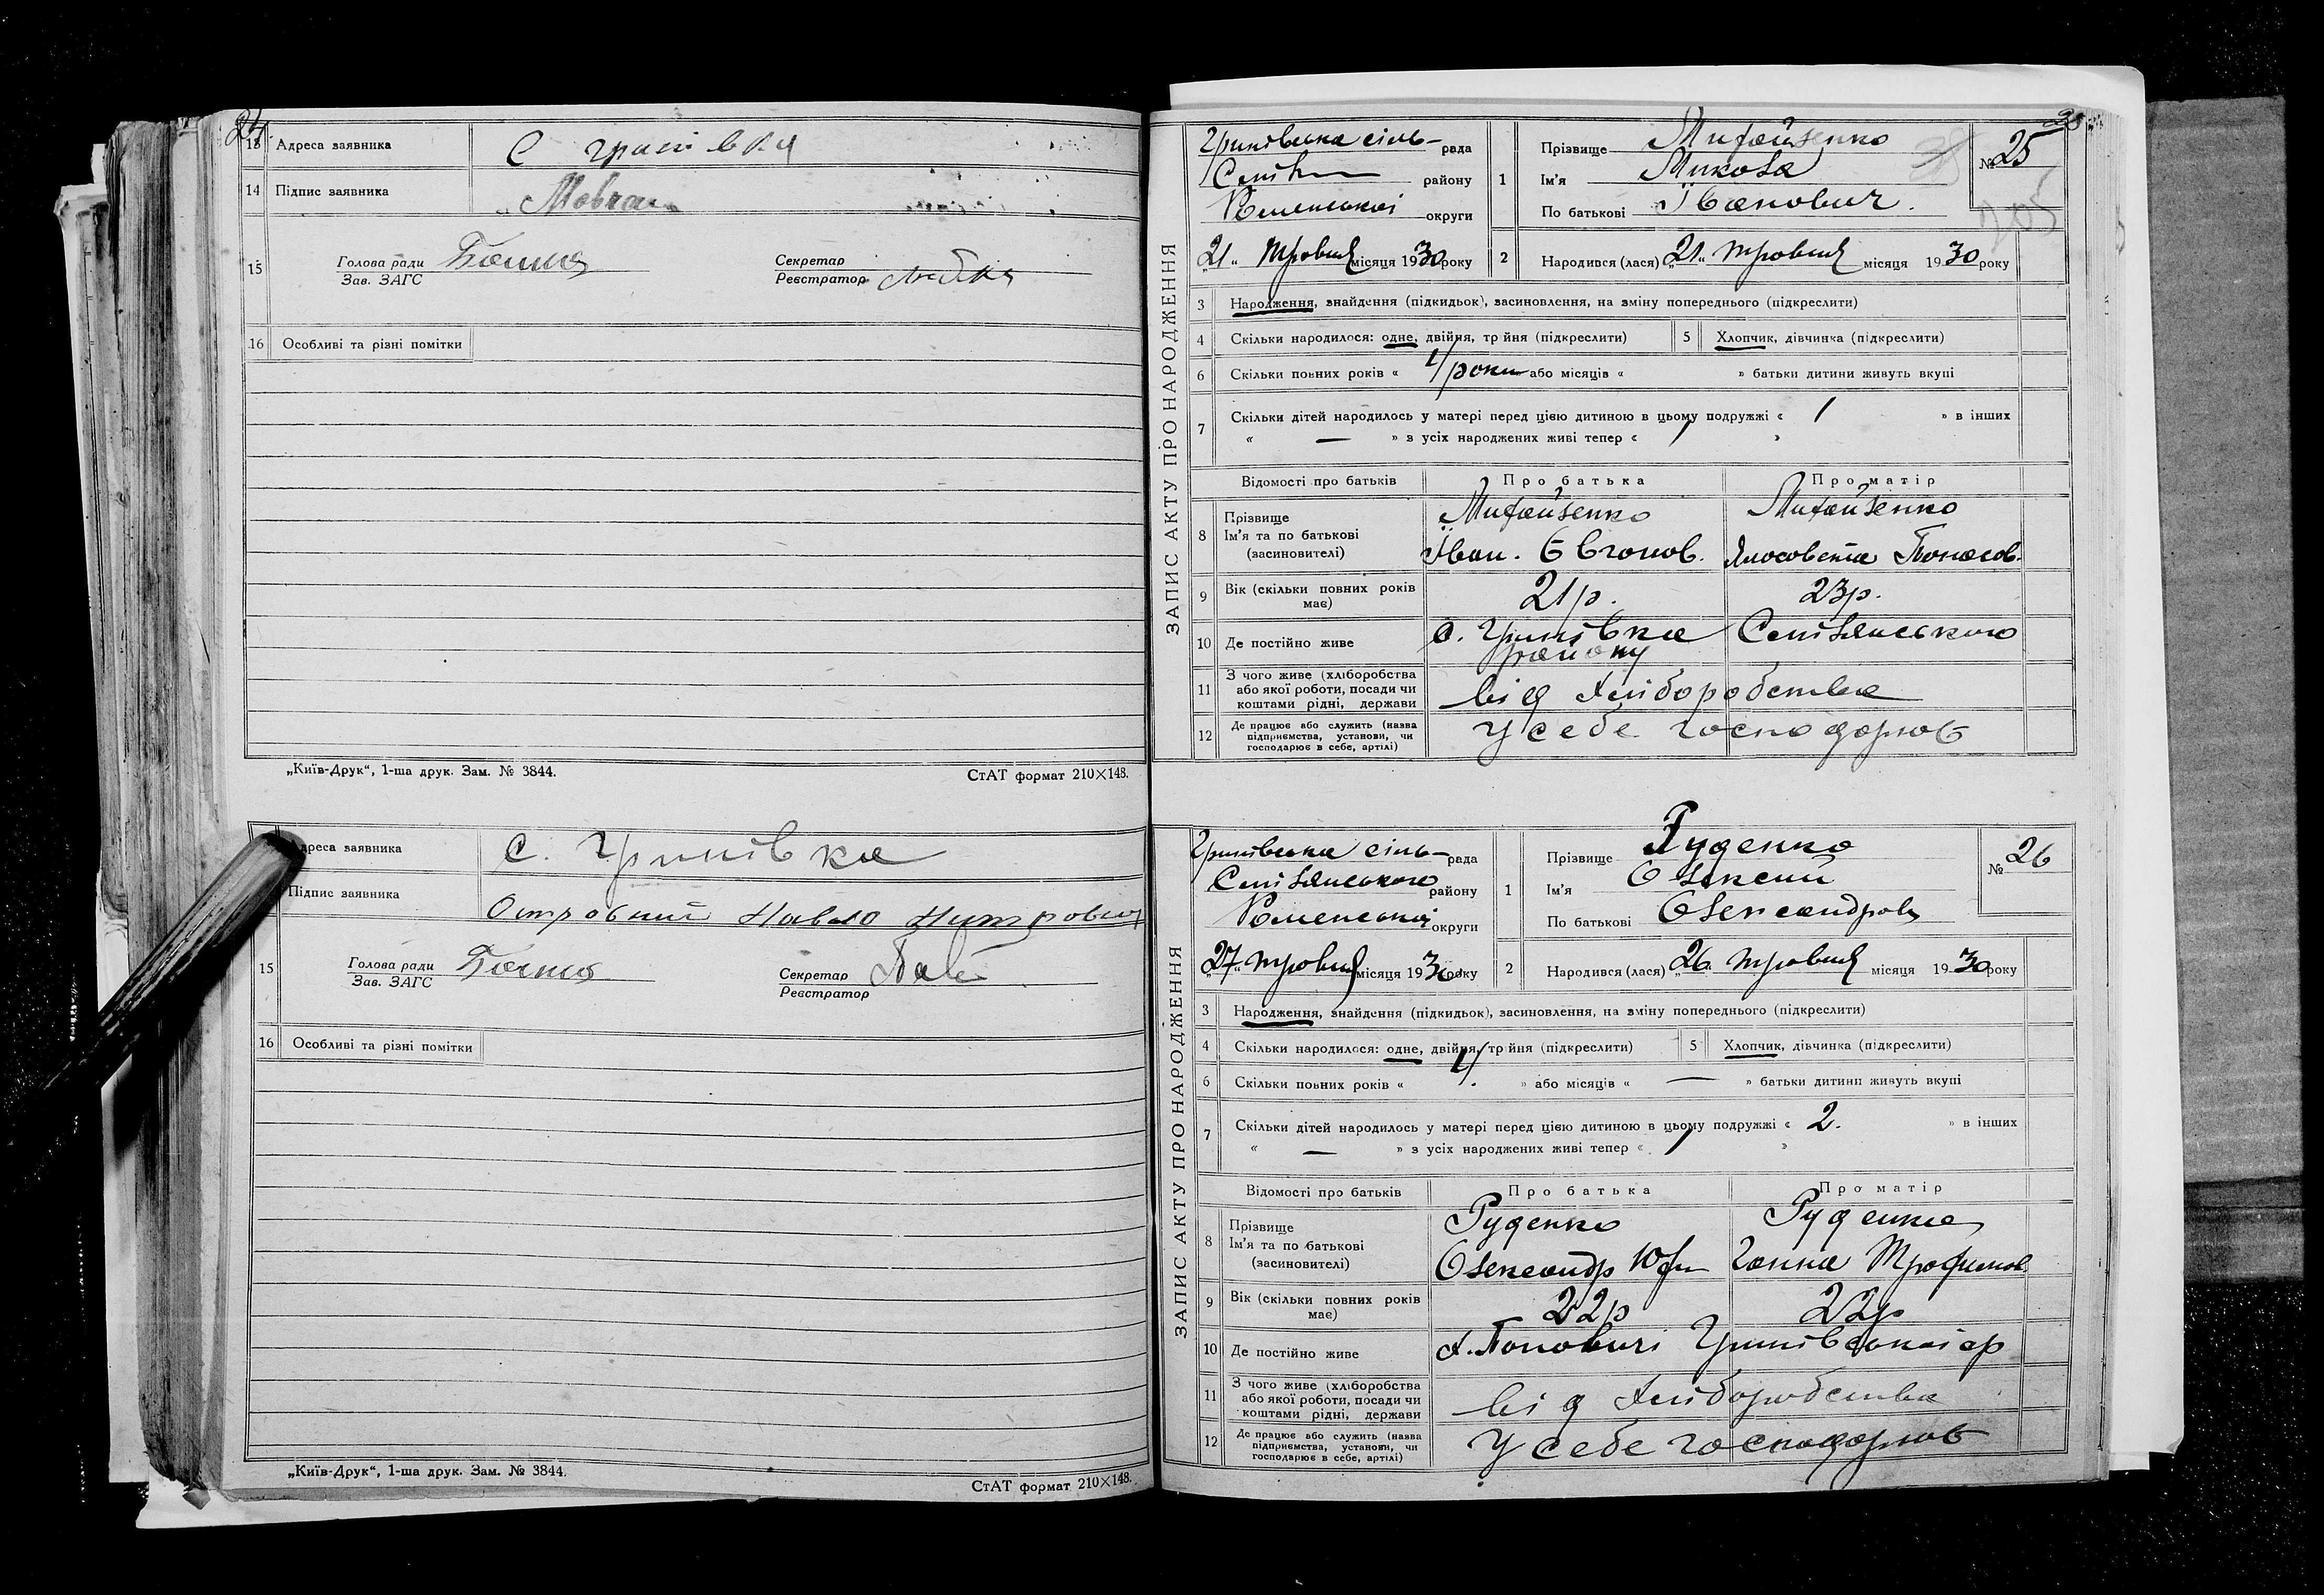 24
13 Адреса заявника С Гринівка
14 Підпис заявника Мовчан
15 Голова ради
Зав. ЗАГС
Секретар
Реєстратор
16 Особливі та різні помітки
„Київ-Друк“, 1-ша друк. Зам. № 3844.
СтАТ формат 210×148.
Адреса заявника С. Гринівка
Підпис заявника Островний Павло
15 Голова ради
Зав. ЗАГС
Секретар
Реєстратор
16 Особливі та різні помітки
„Київ-Друк“, 1-ша друк. Зам. № 3844.
СтАТ формат 210×148.
ЗАПИС АКТУ ПРО НАРОДЖЕННЯ
Гринівська сіль- рада
району
Роменської округи
„21“ Травня місяця 1930 року
1 Прізвище Михайленко
Ім'я Микола
По батькові Іванович.
№ 25
2 Народився (лася) „21“ Травня місяця 1930 року
3 Народження, знайдення (підкидьок), засиновлення, на зміну попереднього (підкреслити)
4 Скільки народилося: одне, двійня, трійня (підкреслити)
5 Хлопчик, дівчинка (підкреслити)
6 Скільки повних років « 4 роки або місяців « » батьки дитини живуть вкупі
7 Скільки дітей народилось у матері перед цією дитиною в цьому подружжі « 1 » в інших
« — » з усіх народжених живі тепер « 1 »
Відомості про батьків Про батька Про матір
8 Прізвище
Ім'я та по батькові
(засиновителі)
Михайленко Михайленко
Іван.
9 Вік (скільки повних років має) 21р. 23р.
10 Де постійно живе с. Гринівка Смілянського
району
11 З чого живе (хліборобства
або якої роботи, посади чи
коштами рідні, держави
від хліборобства
12 Де працює або служить (назва
підприємства, установи, чи
господарює в себе, артілі)
У себе господарюв
ЗАПИС АКТУ ПРО НАРОДЖЕННЯ
Гринівська сіль- рада
Смілянського району
Роменської округи
„27“ Травня місяця 1930 року
1 Прізвище Руденко
Ім'я Олексій
По батькові Олександров
№ 26
2 Народився (лася) „26“ Травня місяця 1930 року
3 Народження, знайдення (підкидьок), засиновлення, на зміну попереднього (підкреслити)
4 Скільки народилося: одне, двійня, трійня (підкреслити)
5 Хлопчик, дівчинка (підкреслити)
6 Скільки повних років « 4. » або місяців « — » батьки дитини живуть вкупі
7 Скільки дітей народилось у матері перед цією дитиною в цьому подружжі « 2. » в інших
« — » з усіх народжених живі тепер « 1 »
Відомості про батьків Про батька Про матір
8 Прізвище
Ім'я та по батькові
(засиновителі)
Руденко Руденка
Олександр Ганна Трофимов.
9 Вік (скільки повних років має) 22р 22р
10 Де постійно живе х. Поповичі Гринівської ср
11 З чого живе (хліборобства
або якої роботи, посади чи
коштами рідні, держави
від хліборобства
12 Де працює або служить (назва
підприємства, установи, чи
господарює в себе, артілі)
У себе господарюв